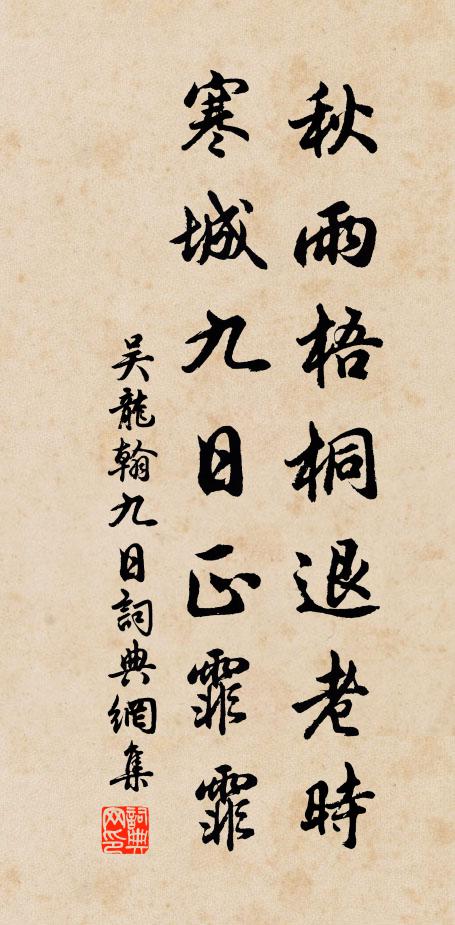 秋雨梧桐退老時
寒城九日正霏霏
吴龍翰九日詞典網集
詞典网印